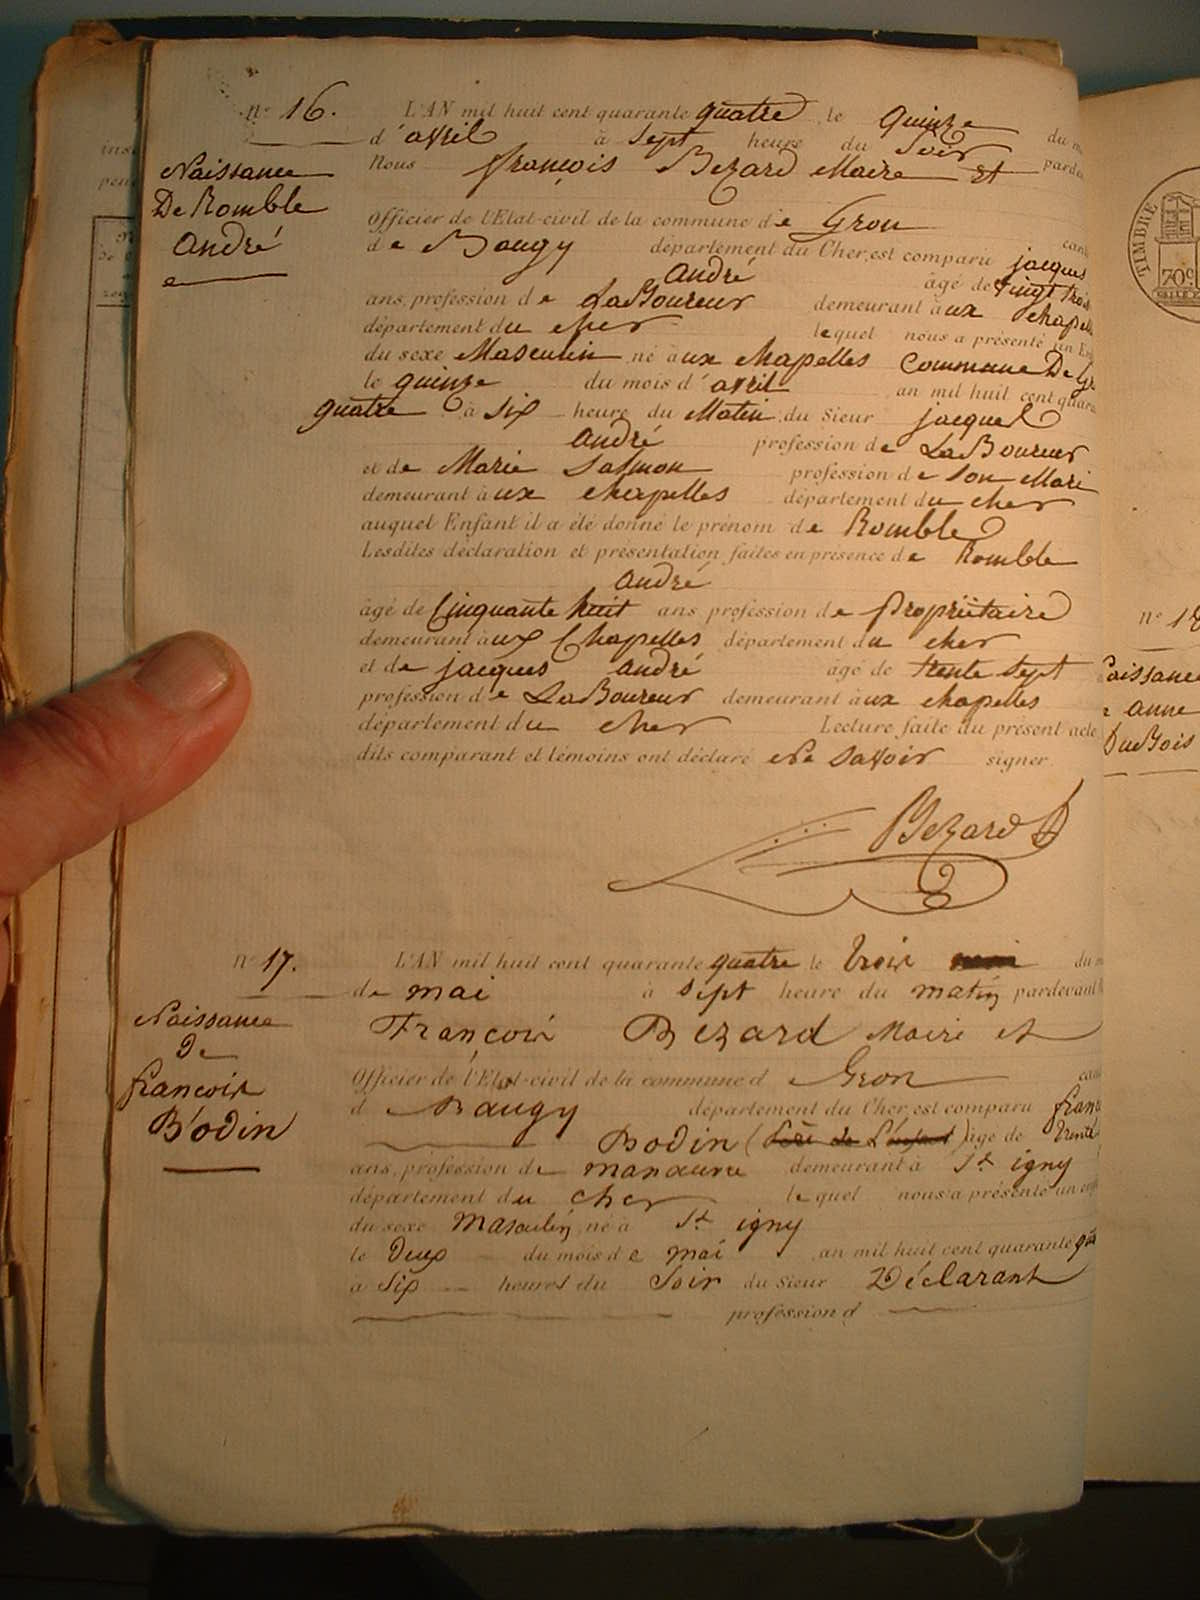 n° 16.
Naissance
De Romble
André
L'AN mil huit cent quarante quatre, le quinze du
d'avril à sept heure du soir
Nous françois Bezard Maire Et
Officier de l'Etat-civil de la commune de Gron
de Baugy département du Cher, est comparu jacques
André âgé de vingt trois
ans, profession de LaBoureur demeurant aux chapelles
département du cher lequel nous a présenté un
du sexe Masculin né aux chapelles Commune De
le quinze du mois d'avril an mil huit cent
quatre à six heure du Matin du sieur jacques
André profession de LaBoureur
et de Marie Salmon profession de son Mari
demeurant aux chapelles département du cher
auquel Enfant il a été donné le prénom de Romble
Lesdites déclaration et présentation faites en présence de Romble
André
âgé de Cinquante huit ans, profession de Propriétaire
demeurant aux Chapelles département du cher
et de jacques André âgé de trente sept
profession de LaBoureur demeurant aux chapelles
département du cher Lecture faite du présent acte
dits comparant et témoins ont déclaré Ne savoir signer.
Bezard
n° 17.
Naissance
De
françois
Bodin
L'AN mil huit cent quarante quatre le trois du
de mai à sept heure du matin pardevant
François Bezard Maire et
Officier de l'Etat-civil de la commune d Gron
d Baugy département du Cher, est comparu
Bodin (Père de L'enfant) âgé de trente
ans, profession de manœuvre demeurant à St igny
département du cher lequel nous a présenté un
du sexe Masculin né à St igny
le Deux du mois de mai an mil huit cent quarante
à six heures du Soir du sieur Déclarant
profession d
TIMBRE
70c
n° 18
Naissance
anne
DuBois